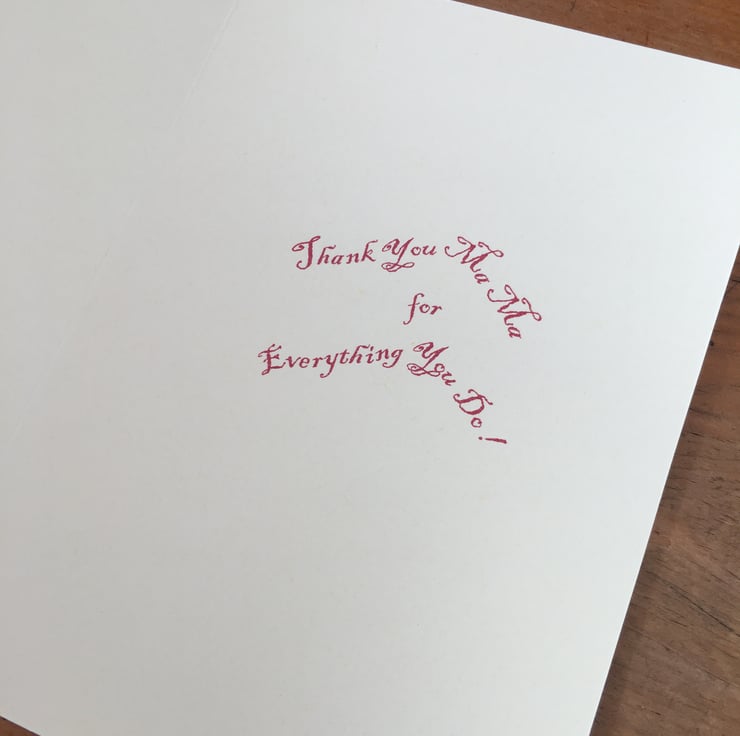 Thank You Ma Ma
for
Everything You Do!